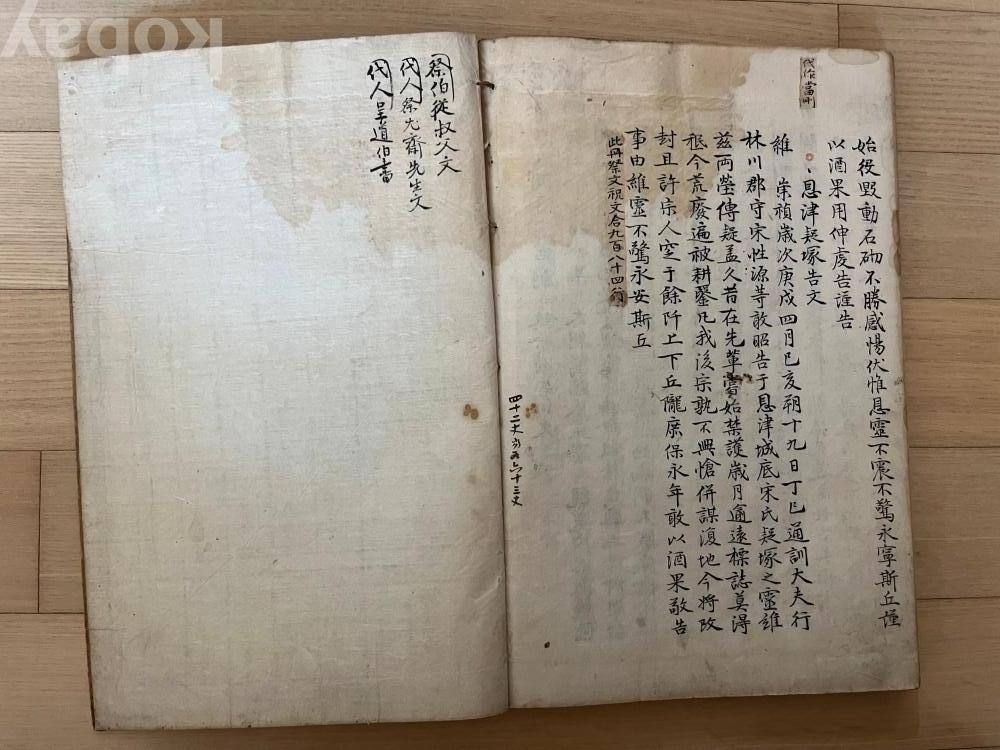 代作當刪
始役毀動石砌不勝感惕伏惟息靈不震不驚永寧斯丘謹
以酒果用伸虔告謹告
恩津疑塚告文
維 崇禎歲次庚戌四月己亥朔十九日丁巳通訓大夫行
林川郡守宋性源等敢昭告于恩津城底宋氏疑塚之靈維
茲兩塋傳疑孟久昔在先輩當始禁護歲月逾遠標誌莫得
秪今荒廢遍被耕鑿凡我後宗孰不興愴併謀復地今將改
封且許宗人空于餘阡上下丘隴庶保永年敢以酒果敬告
事由維靈不驚永安斯丘
此丹祭文祝文合九百八十四行
四十二丈 六十三丈
祭伯從叔父文
代人祭尤齋先生文
代人呈道伯書
kobay